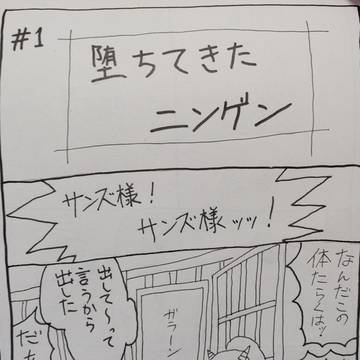 #1
堕ちてきた
ニンゲン
サンズ様!
サンズ様ッッ!
なんだこの
体たらくはッ!
ガラーン
出して〜って
言うから
出した
だち